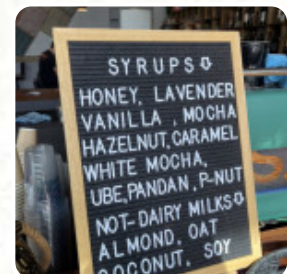 SYRUPS⇩
HONEY, LAVENDER
VANILLA , MOCHA
HAZELNUT, CARAMEL
WHITE MOCHA,
UBE, PANDAN, P-NUT
NOT-DAIRY MILKS⇩
ALMOND, OAT
COCONUT, SOY